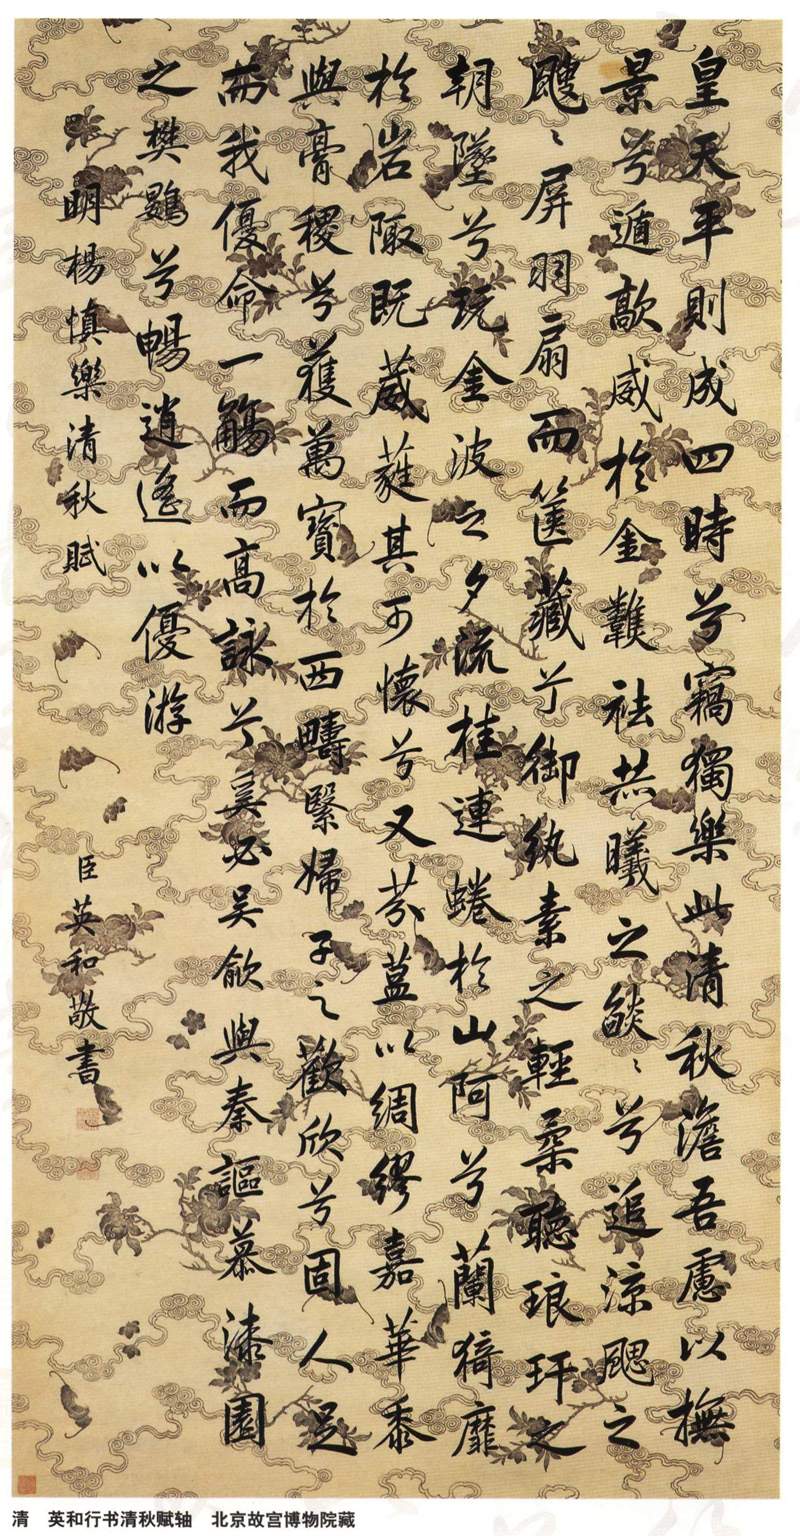 皇天平則成四時兮竊獨樂此清秋澹吾慮以撫
景兮遁歊威於金難祛赫曦之燄〻兮追涼颸之
颼〻屏羽扇而篋藏兮御紈素之輕柔聽琅玕之
朝墜兮玩金波之夕流桂連蜷於山阿兮蘭猗靡
於岩陬既葳蕤其可懷兮又芬葐以綢繆嘉華黍
與膏稷兮獲萬寶於西疇緊婦子之歡欣兮固人足
而我優命一觴而高詠兮奚必吴歈與秦謳慕漆園
之樊鷃兮暢逍遙以優游
明楊慎樂清秋賦
臣英和敬書
清 英和行书清秋赋轴 北京故宫博物院藏